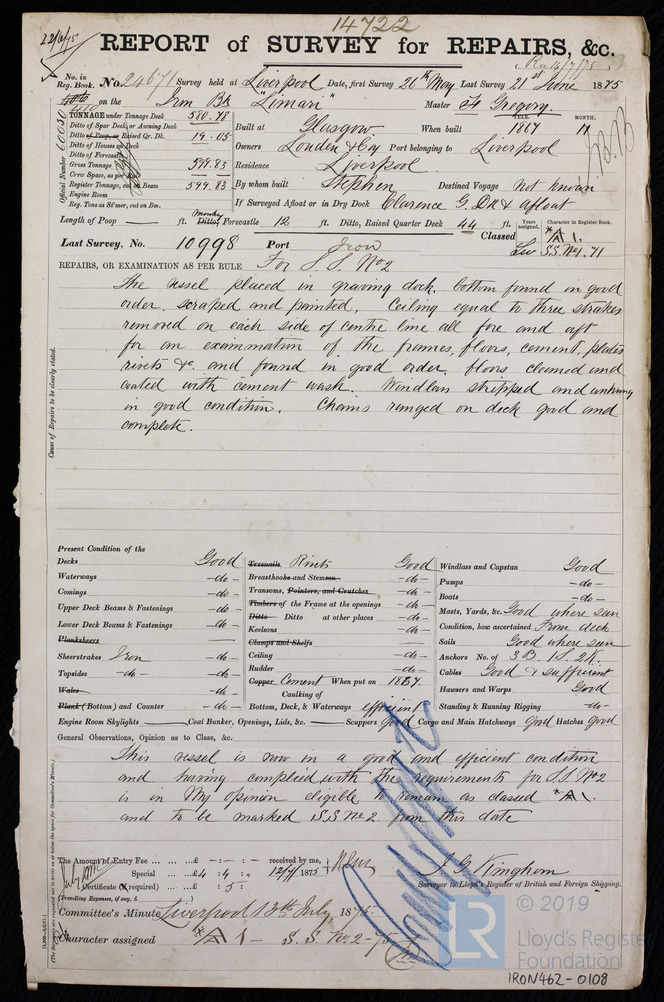 14722
22/6/75
REPORT of SURVEY for REPAIRS, &c.
No. in Reg. Book. No. 24671 Survey held at Liverpool Date, first Survey 26th May Last Survey 21st June 1875
410 on the Iron Bk "Limari" Master F Gregory
TONNAGE under Tonnage Deck 580.78
Ditto of Spar Deck, or Awning Deck
Ditto of Poop, or Raised Qr. Dk. 19.05
Ditto of Houses on Deck
Ditto of Forecastle
Gross Tonnage 599.83
Crew Space, as per Rule
Register Tonnage, cut on Beam 599.83
Engine Room
Reg. Tons as St'mer, cut on Bm.
Official Number 60050
Built at Glasgow When built YEAR. 1867 MONTH. 11
Owners Louden & Co Port belonging to Liverpool
Residence Liverpool
By whom built Stephen Destined Voyage Not known
If Surveyed Afloat or in Dry Dock Clarence G. Dk & afloat
Length of Poop — ft. Monkey Ditto, Forecastle 12 ft. Ditto, Raised Quarter Deck 44 ft.
Years assigned. Character in Register Book.
Classed *A1.
Last Survey, No. 10998 Port Iron Liv S.S. No 1. 71
REPAIRS, OR EXAMINATION AS PER RULE For S.S. No 2
Cause of Repairs to be clearly stated.
The vessel placed in graving dock. bottom found in good
order. scraped and painted. Ceiling equal to three strakes
removed on each side of centre line all fore and aft
for an examination of the frames, floors, cement, plates
rivets &c. and found in good order. floors cleaned and
coated with cement wash. Windlass stripped and
in good condition. Chains ranged on deck good and
complete.
Present Condition of the
Decks Good
Waterways -do-
Comings -do-
Upper Deck Beams & Fastenings -do-
Lower Deck Beams & Fastenings -do-
Planksheers
Sheerstrakes Iron -do-
Topsides -do- -do-
Wales
Plank (Bottom) and Counter -do-
Treenails Rivets Good
Breasthooks and Stemson -do-
Transoms, Pointers, and Crutches -do-
Timbers of the Frame at the openings -do-
Ditto Ditto at other places -do-
Keelsons -do-
Clamps and Shelfs
Ceiling -do-
Rudder -do-
Copper Cement When put on 1867
Caulking of
Bottom, Deck, & Waterways efficient
Windlass and Capstan Good
Pumps -do-
Boats -do-
Masts, Yards, &c. Good where seen
Condition, how ascertained From deck
Sails Good where seen
Anchors No. of 3B. 1S. 2K.
Cables Good & sufficient
Hawsers and Warps Good
Standing & Running Rigging -do-
Engine Room Skylights — Coal Bunker, Openings, Lids, &c. — Scuppers Good Cargo and Main Hatchways Good Hatches Good
General Observations, Opinion as to Class, &c.
This vessel is now in a good and efficient condition
and having complied with the requirements for S.S. No 2
is in My opinion eligible to remain as classed *A1.
and to be marked S.S. No 2 from this date
The Amount of Entry Fee ... £ - : - : - received by me,
Special ... £4 : 4 : - 12/7/1875
Certificate (if required) : 5 : -
(Travelling Expenses, if any, £ )
J. G. Kingham
Surveyor to Lloyd's Register of British and Foreign Shipping.
Committee's Minute Liverpool 13th July 1875
Character assigned *A1 - S.S. No. 2-75
© 2019
LR
Lloyd's Register
Foundation
IRON462-0108